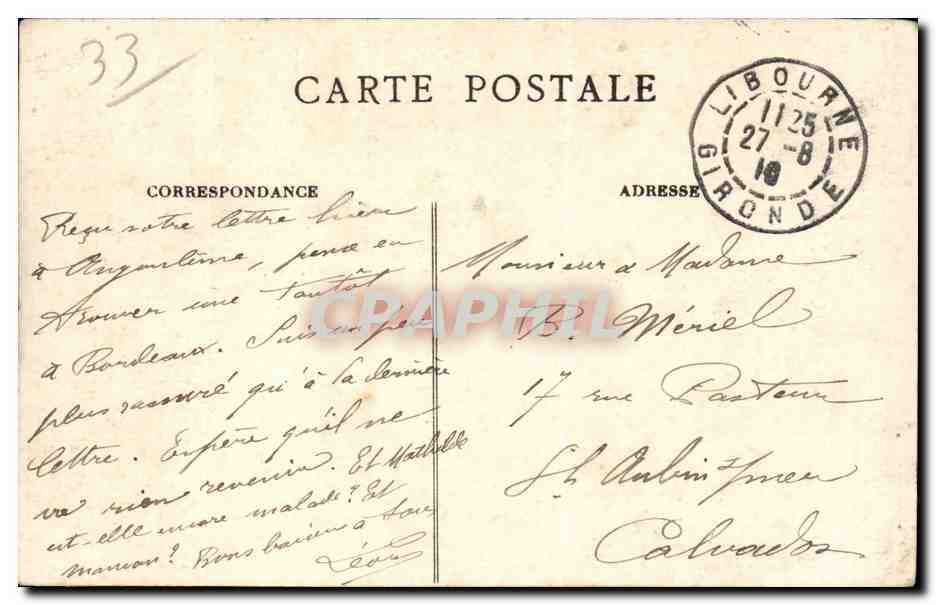 33
CARTE POSTALE
LIBOURNE
11 25
27 -8
10
GIRONDE
CORRESPONDANCE
ADRESSE
Reçu votre lettre hier
à Angoulême, pense en
trouver une tantôt
à Bordeaux. Suis un peu
plus rassuré qu'à la dernière
lettre. Espère qu'il ne
va rien revenir. Et Mathilde
est-elle encore malade? Et
maman? Bons baisers à tous
Léon
Monsieur & Madame
B. Mériel
17 rue Pasteur
St Aubin s/mer
Calvados
CRAPHIL